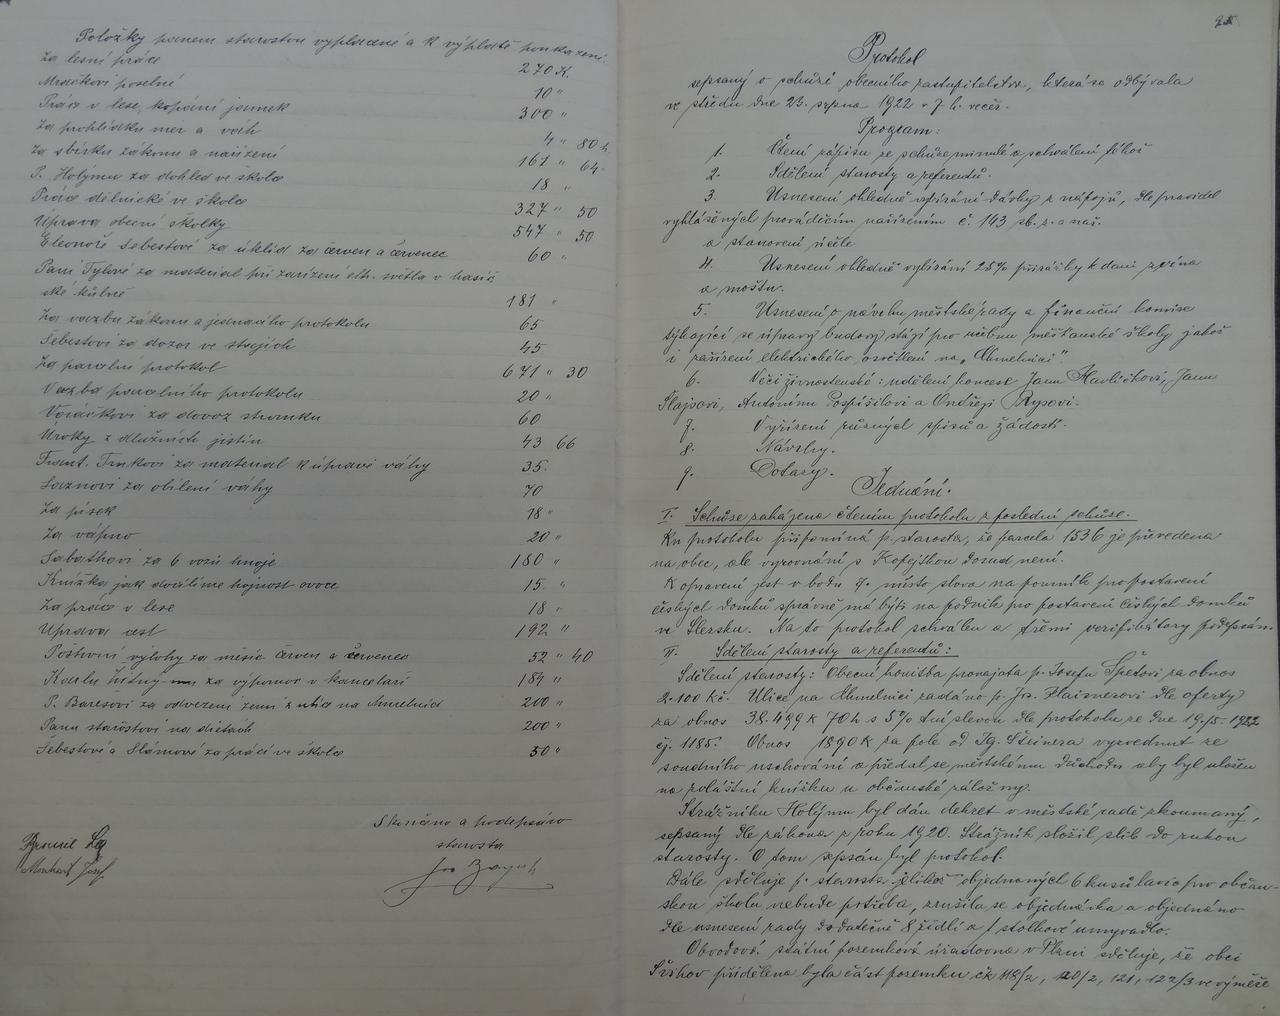 Položky panem starostou vyplacené a k výplatě poukázené.
Za lesní práce 270 K.
Mračkovi poselné 10 "
Práce v lese, kopání jamek 300 "
Za prohlídku měr a váh 4 " 80 h
Za sbírku zákonů a nařízení 161 " 64.
P. Holýmu za dohled ve škole 18 "
Práce dělnické ve škole 327 " 50
Úprava obecní školky 547 " 50
Eleonoře Šebestové za úklid za červen a červenec 60 "
Paní Tylové za material při zařízení elk. světla v hasič
ské kůlně 181 "
Za vazbu zákonu a jednacího protokolu 65
Šebestovi za dozor ve strojích 45
Za parcelní protokol 671 " 30
Vazba parcelního protokolu 20 "
Voráčkovi za dovoz štěrku 60
Úroky z dlužních jistin 43 66
Frant. Trnkovi za material k úpravě váhy 35.
Laznovi za obílení váhy 70
Za písek 18 "
Za vápno 20 "
Sabathovi za 6 vozů hnoje 180 "
Knížka jak docílíme hojnost ovoce 15 "
Za práce v lese 18 "
Úprava cest 192 "
Poštovní výlohy za měsíc červen a červenec 52 " 40
Karlu za výpomoc v kanceláři 184 "
P. Barešovi za odvezení zemi z ulic na Chmelnici 200 "
Panu starostovi na dietách 200 "
Šebestové a Slámové za práci ve škole 50 "
Skončeno a podepsáno
starosta
Jos
Josef
Protokol
sepsaný o schůzi obecního zastupitelstva, která se odbývala
ve středu dne 23. srpna 1922 v 7. h. večer.
Program:
1. Čtení zápisu ze schůze minulé a schválení téhož
2. Sdělení starosty a referentů.
3. Usnesení ohledně vybírání dávky z nápojů, dle pravidel
vyhlášených prováděcím nařízením č. 143 sb. z. a nař.
a stanovení účele
4. Usnesení ohledně vybírání 25% přirážky k dani z vína
a moštu.
5. Usnesení o návrhu městské rady a finanční komise
týkající se úpravy budovy stájí pro učebnu měšťanské školy jakož
i zařízení elektrického osvětlení na „Chmelnici".
6. Věci živnostenské: udělení koncese Janu Havlíčkovi, Janu
Šlajsovi, Antonínu Pospíšilovi a Ondřeji Rysovi.
7. Vyřízení různých spisů a žádostí.
8. Návrhy.
9. Dotazy.
Jednání.
I. Schůze zahájena čtením protokolu z poslední schůse.
Ku protokolu připomíná p. starosta, že parcela 1536 je převedena
na obec, ale vyrovnání s Kofejtkou dosud není.
K opravení jest v bodu 9. místo slova na pomník pro postavení
českých domků správně má býti na podnik pro postavení českých domků
ve Slezsku. Na to protokol schválen a třemi verifikátory podepsán.
II. Sdělení starosty a referentů:
Sdělení starosty: Obecní honitba pronajata p. Josefu Špetovi za obnos
2.100 Kč. Ulice na Chmelnici zadáno p. Jos. Haisnerovi dle oferty
za obnos 38.499 K 70 h s 5% tní slevou dle protokolu ze dne 19./5. 1922
čj. 1185. Obnos 1890 K za pole od Ig. Steinera vyzvednut ze
soudního uschování a předal se městskému důchodu aby byl uložen
na zvláštní knížku u občanské záložny.
Strážníku Holýmu byl dán dekret v městské radě zkoumaný,
sepsaný dle zákona z roku 1920. Strážník složil slib do rukou
starosty. O tom sepsán byl protokol.
Dále sděluje p. starosta jelikož objednaných 6 kusů lavic pro občan-
skou školu nebude potřeba, zrušila se objednávka a objednáno
dle usnesení rady dodatečně 8 židlí a 1 stolkové umyvadlo.
Obvodová státní pozemková úřadovna v Plzni sděluje, že obci
Švihov přidělena byla část pozemku čk 118/2, 120/2, 121, 122/3 ve výměře